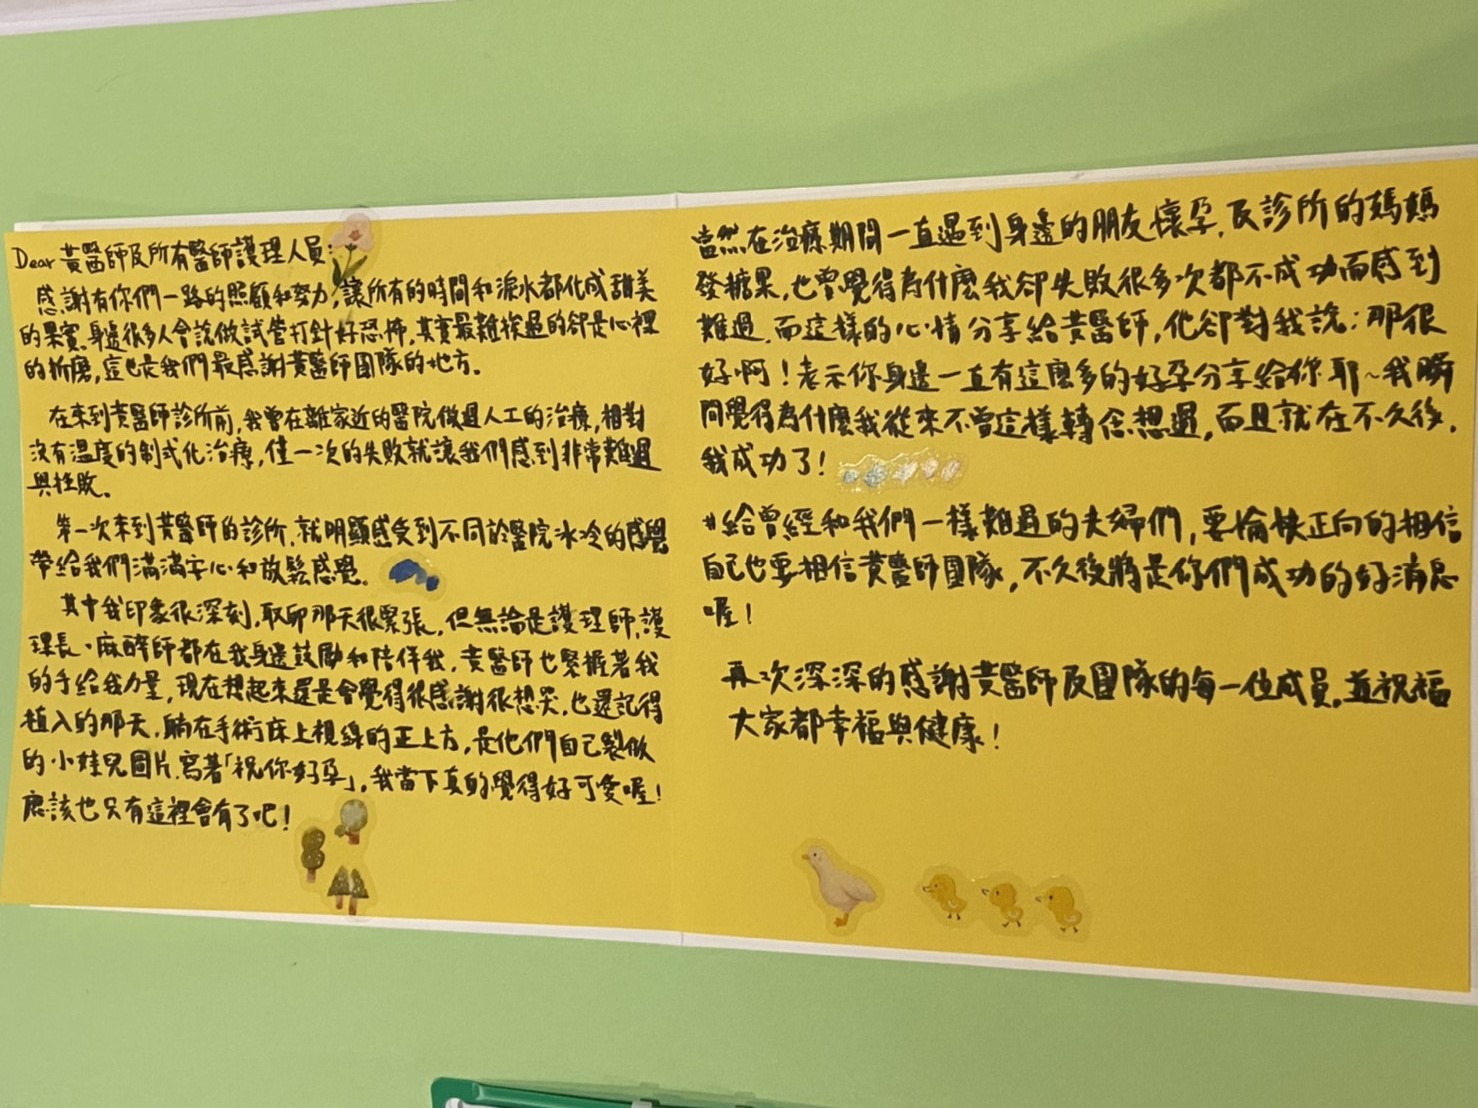 Dear 黃醫師及所有醫師護理人員:
感謝有你們一路的照顧和努力,讓所有的時間和淚水都化成甜美
的果實,身邊很多人會說做試管打針好恐怖,其實最難挨過的卻是心裡
的折磨,這也是我們最感謝黃醫師團隊的地方。
在來到黃醫師診所前,我曾在離家近的醫院做過人工的治療,相對
沒有溫度的制式化治療,僅一次的失敗就讓我們感到非常難過
與挫敗。
第一次來到黃醫師的診所,就明顯感受到不同於醫院冰冷的感覺
帶給我們滿滿安心和放鬆感覺。
其中我印象很深刻,取卵那天很緊張,但無論是護理師,護
理長、麻醉師都在我身邊鼓勵和陪伴我,黃醫師也緊握著我
的手給我力量,現在想起來還是會覺得很感謝很想哭,也還記得
植入的那天,躺在手術床上視線的正上方,是他們自己製做
的小娃兒圖片,寫著「祝你好孕」,我當下真的覺得好可愛喔!
應該也只有這裡會有了吧!
當然在治療期間一直遇到身邊的朋友懷孕,及診所的媽媽
發糖果,也曾覺得為什麼我卻失敗很多次都不成功而感到
難過,而這樣的心情分享給黃醫師,他卻對我說:那很
好啊!表示你身邊一直有這麼多的好孕分享給你耶~我瞬
間覺得為什麼我從來不曾這樣轉念想過,而且就在不久後,
我成功了!
#給曾經和我們一樣難過的夫婦們,要愉快正向的相信
自己也要相信黃醫師團隊,不久後將是你們成功的好消息
喔!
再次深深的感謝黃醫師及團隊的每一位成員,並祝福
大家都幸福與健康!